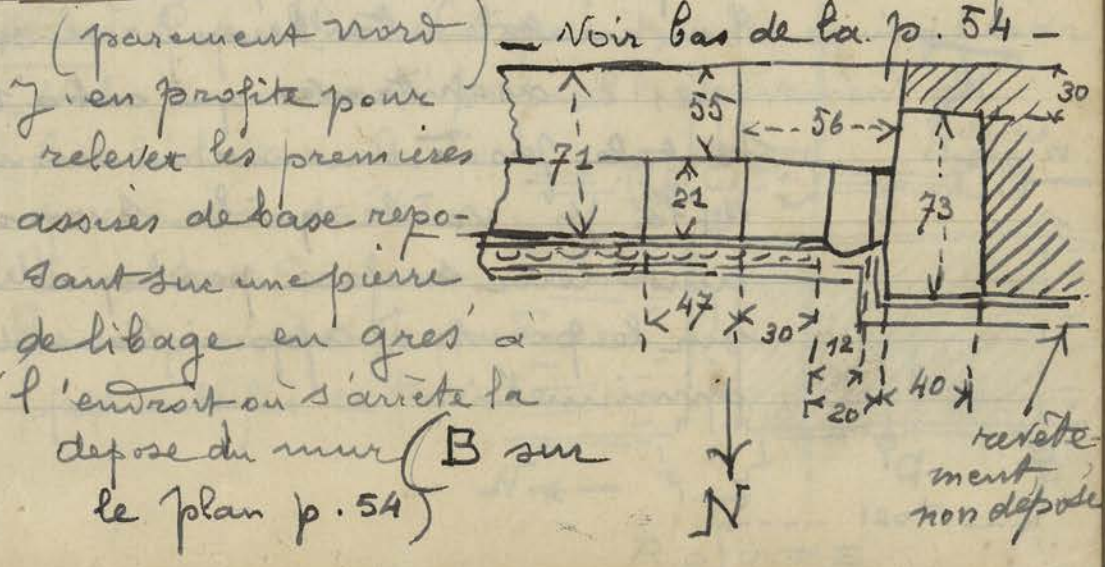 (parement Nord)
— Voir bas de la p. 54 —
J'en profite pour
relever les premières
assises de base repo-
sant sur une pierre
de libage en grès à
l'endroit où s'arrête la
depose du mur (B sur
le plan p. 54)
55
30
56
71
21
73
47
30
12
20
40
N
revête-
ment
non déposé